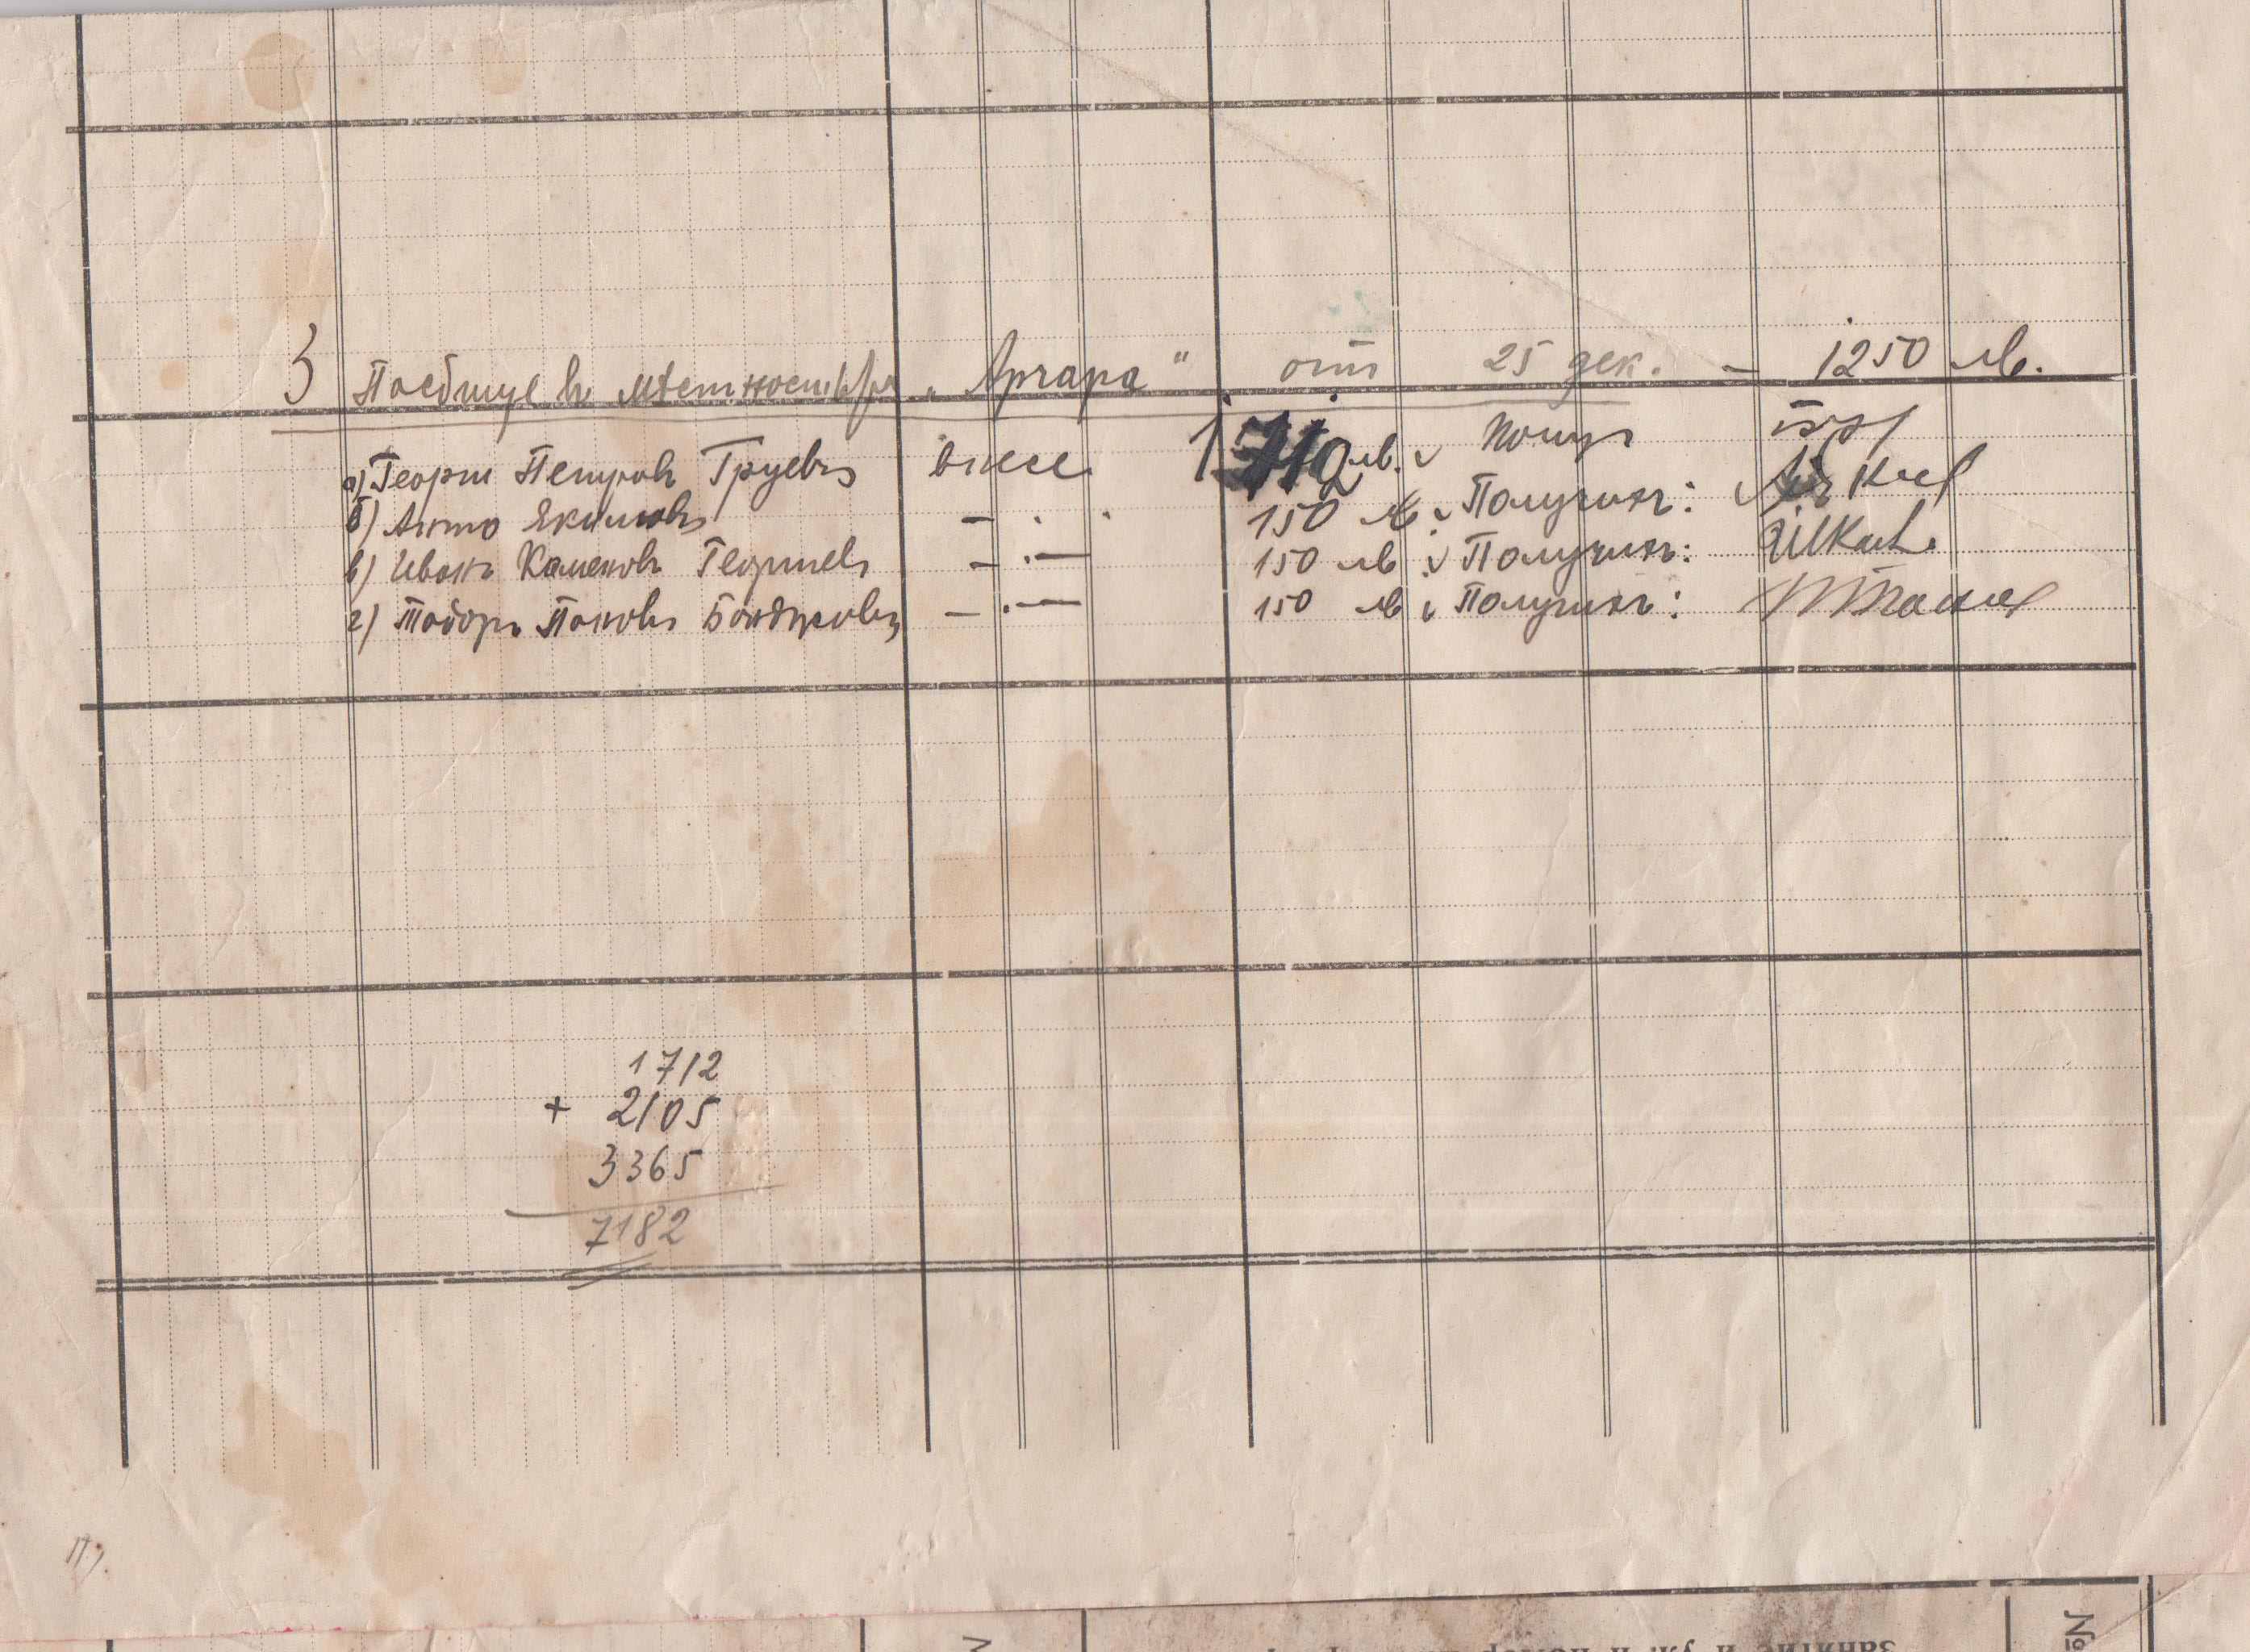 3 Пасбище въ мѣстностьта „Арчара“ от 25 дек. – 1250 лв.
а) Георги Петровъ Груевъ внесе 1712 лв. Получ
б) Анто Якимовъ – . . 150 лв. Получихъ:
в) Иванъ Каменовъ Георгиевъ – . – 150 лв Получихъ:
г) Тодоръ Пановъ – . – 150 лв Получихъ:
1712
+ 2105
3365
7182
№